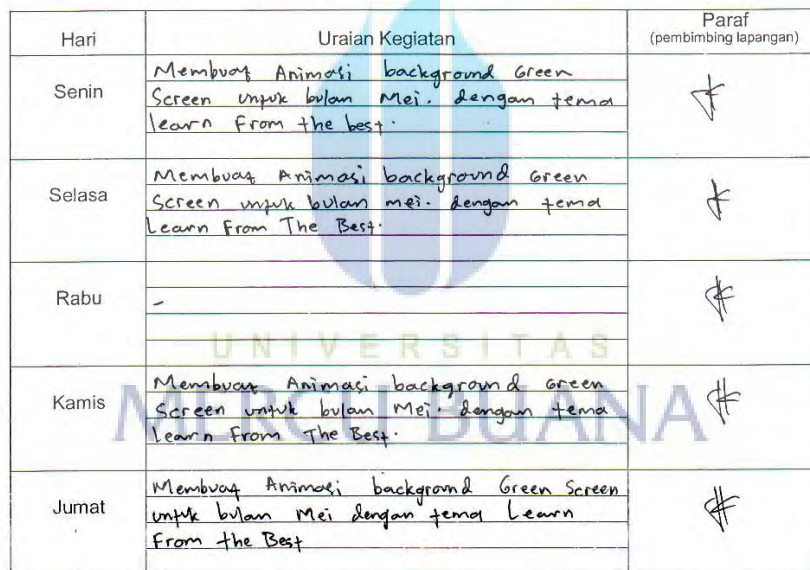 Hari Uraian Kegiatan Paraf
(pembimbing lapangan)
Senin
Membuat Animasi background Green
Screen untuk bulan Mei. dengan tema
learn From the best.
Selasa
Membuat Animasi background Green
Screen untuk bulan mei. dengan tema
Learn From The Best.
Rabu
-
UNIVERSITAS
MERCU BUANA
Kamis
Membuat Animasi background Green
Screen untuk bulan Mei. dengan tema
Learn From The Best.
Jumat
Membuat Animasi background Green Screen
untuk bulan Mei dengan tema Learn
From the Best